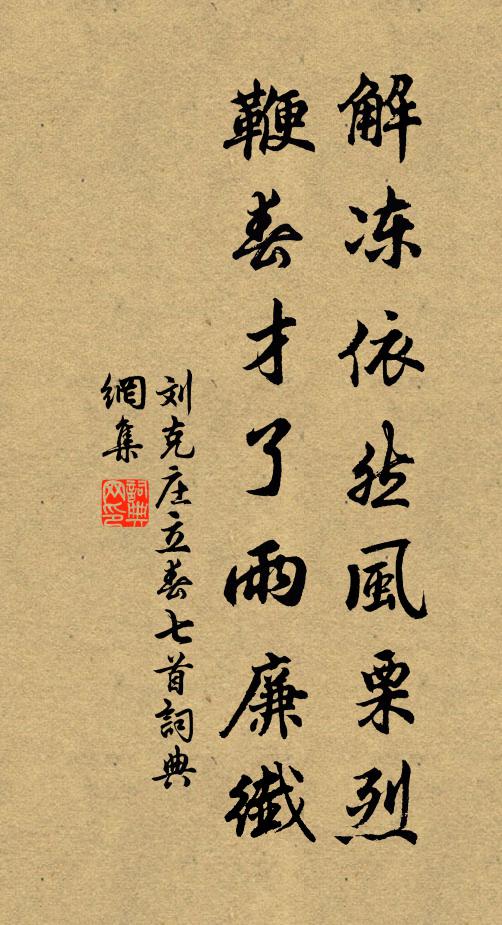 解冻依然風栗烈
鞭春才了雨廉纖
刘克庄立春七首詞典
網集
詞典
网印